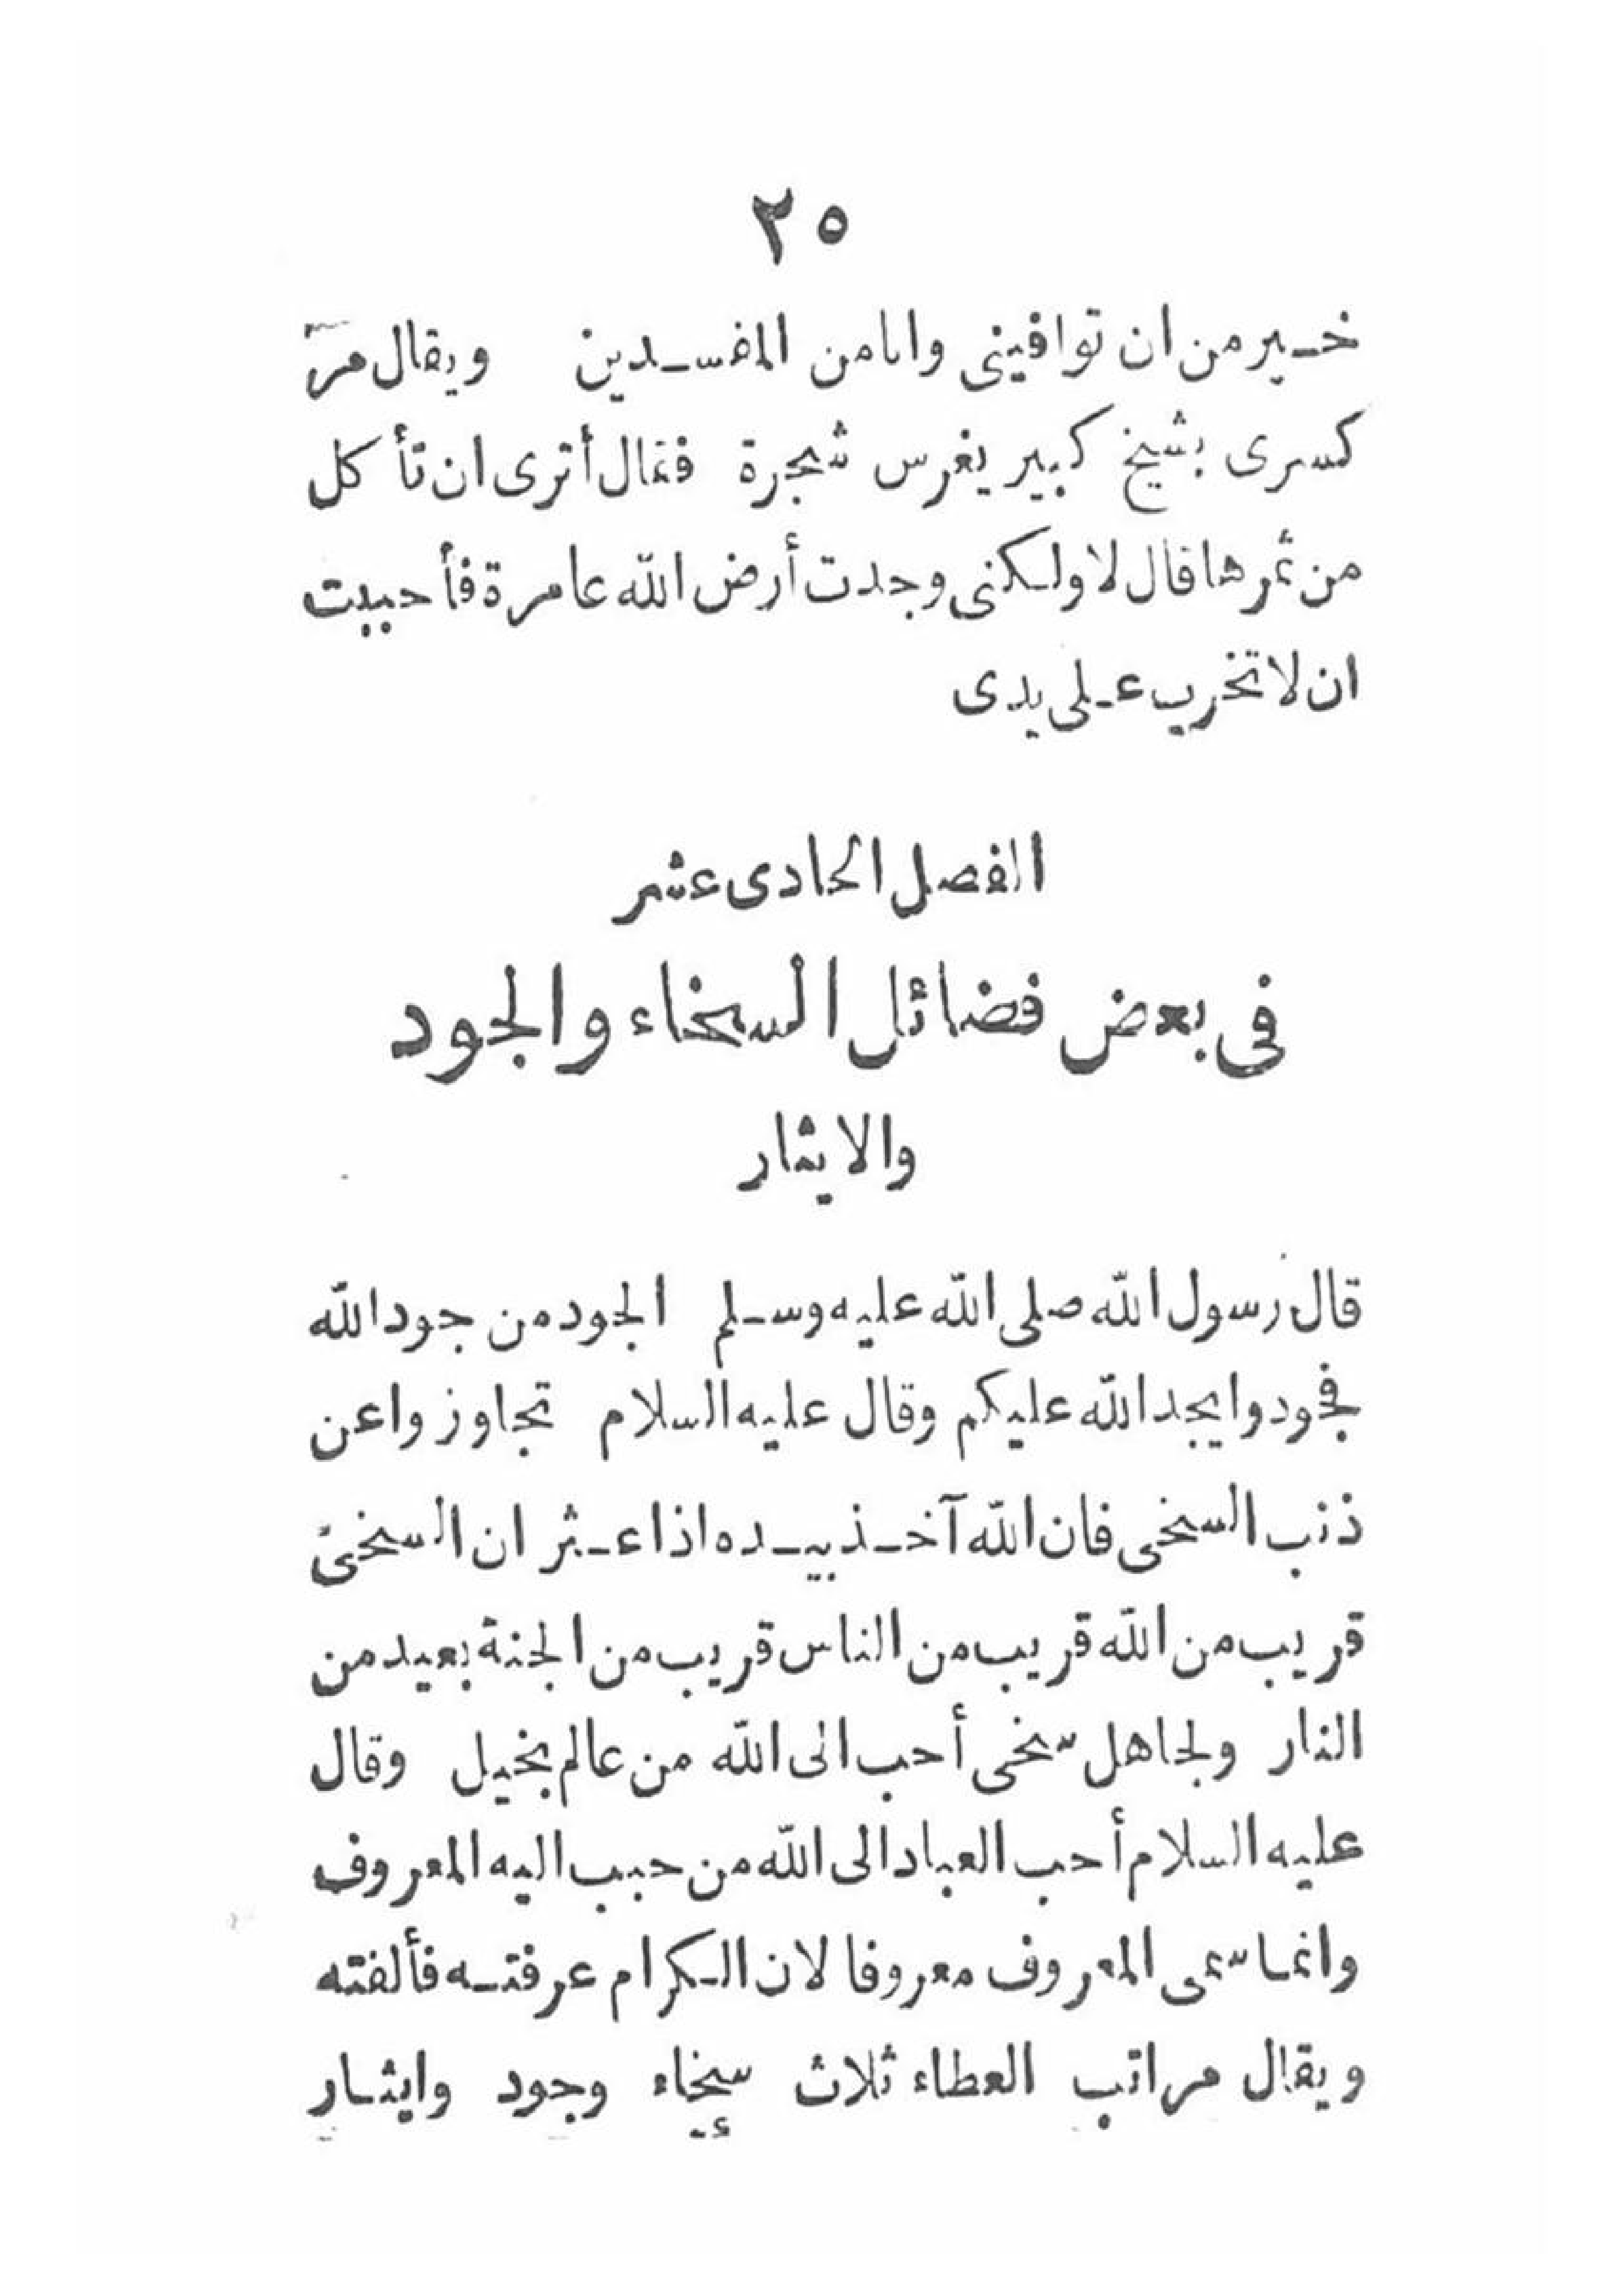 ٢٥
خير من ان توافينى وانا من المفسدين ويقال مرّ
كسرى بشيخ كبير يغرس شجرة فقال أترى ان تأكل
من ثمرها قال لا ولكنى وجدت أرض الله عامرة فأحببت
ان لا تخرب على يدى
الفصل الحادى عشر
فى بعض فضائل السخاء والجود
والايثار
قال رسول الله صلى الله عليه وسلم الجود من جود الله
فجودوا يجد الله عليكم وقال عليه السلام تجاوزوا عن
ذنب السخى فان الله آخذ بيده اذا عثر ان السخىّ
قريب من الله قريب من الناس قريب من الجنة بعيد من
النار ولجاهل سخى أحب الى الله من عالم بخيل وقال
عليه السلام أحب العباد الى الله من حبب اليه المعروف
وانما سمى المعروف معروفا لان الكرام عرفته فألفته
ويقال مراتب العطاء ثلاث سخاء وجود وايثار
ع